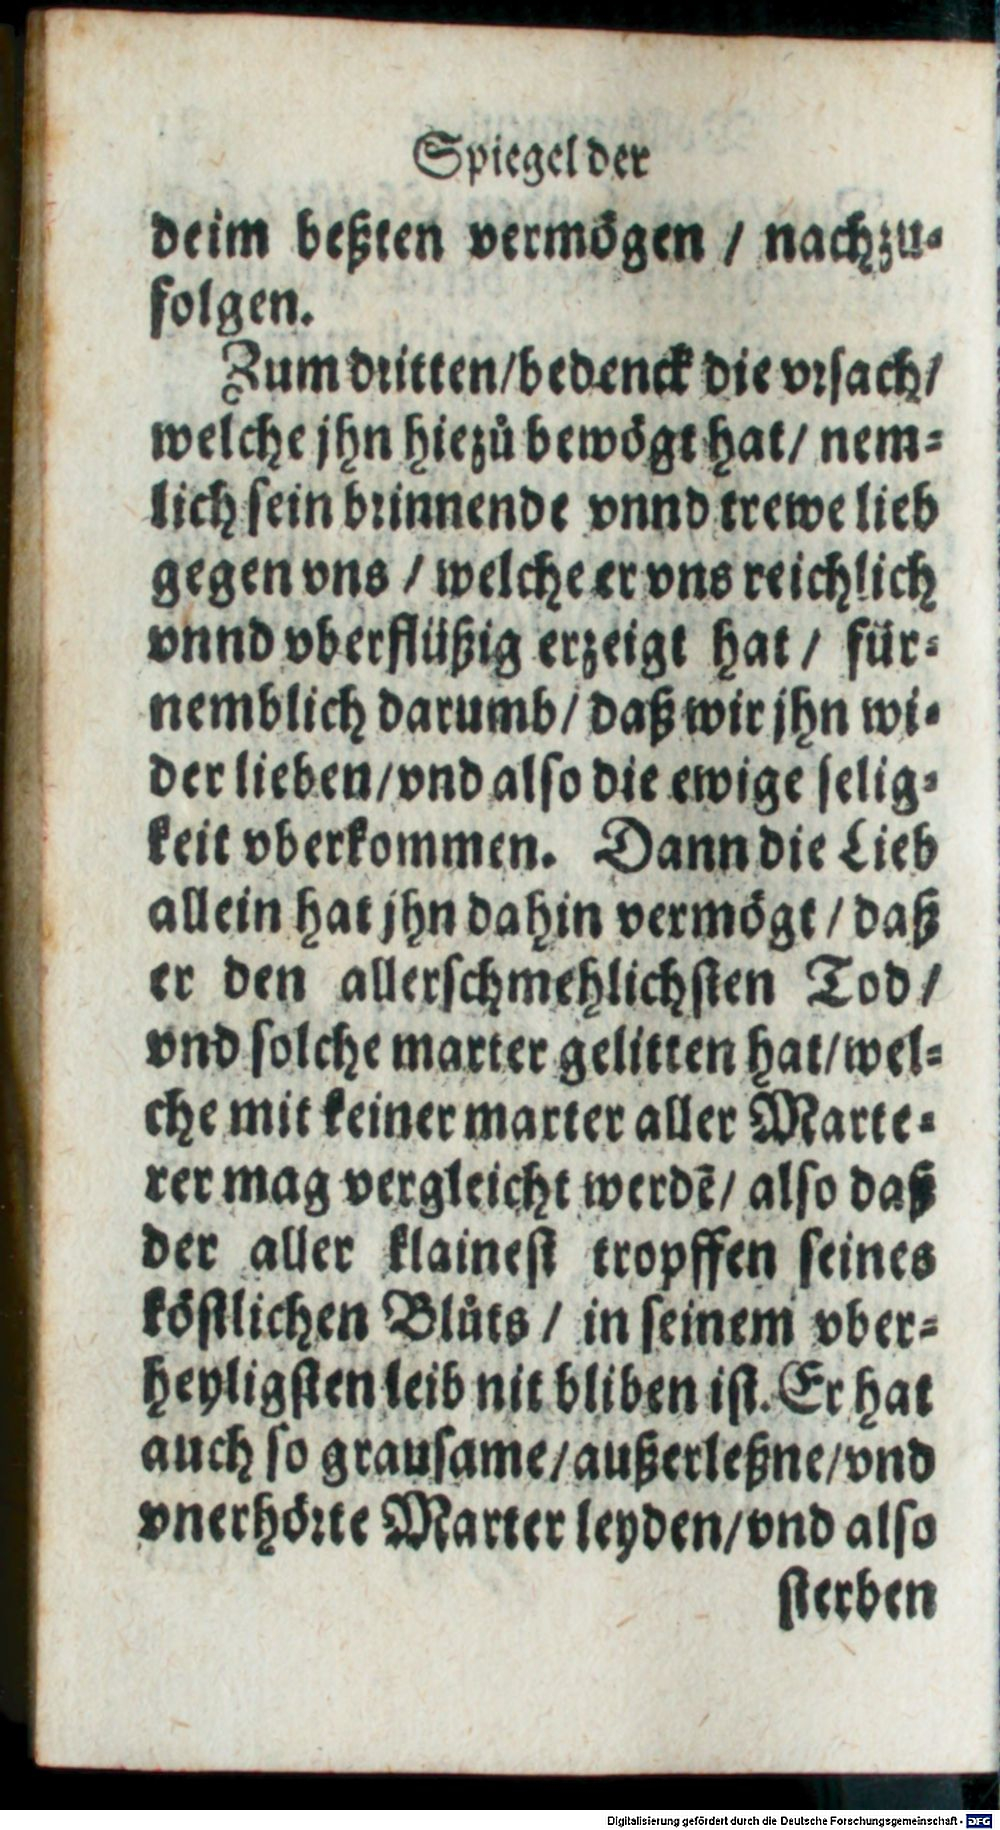 Spiegel der
deim beßten vermögen / nachzu-
folgen.
Zum dritten/bedenck die vrsach/
welche jhn hiezů bewögt hat/ nem-
lich sein brinnende vnnd trewe lieb
gegen vns / welche er vns reichlich
vnnd vberflüßig erzeigt hat / für-
nemblich darumb/ daß wir jhn wi-
der lieben/vnd also die ewige selig-
keit vberkommen. Dann die Lieb
allein hat jhn dahin vermögt / daß
er den allerschmehlichsten Tod /
vnd solche marter gelitten hat/wel-
che mit keiner marter aller Marte-
rer mag vergleicht werdē/ also daß
der aller klainest tropffen seines
köstlichen Blůts / in seinem vber-
heyligsten leib nit bliben ist. Er hat
auch so grausame/außerleßne/vnd
vnerhörte Marter leyden/vnd also
sterben
Digitalisierung gefördert durch die Deutsche Forschungsgemeinschaft - DFG